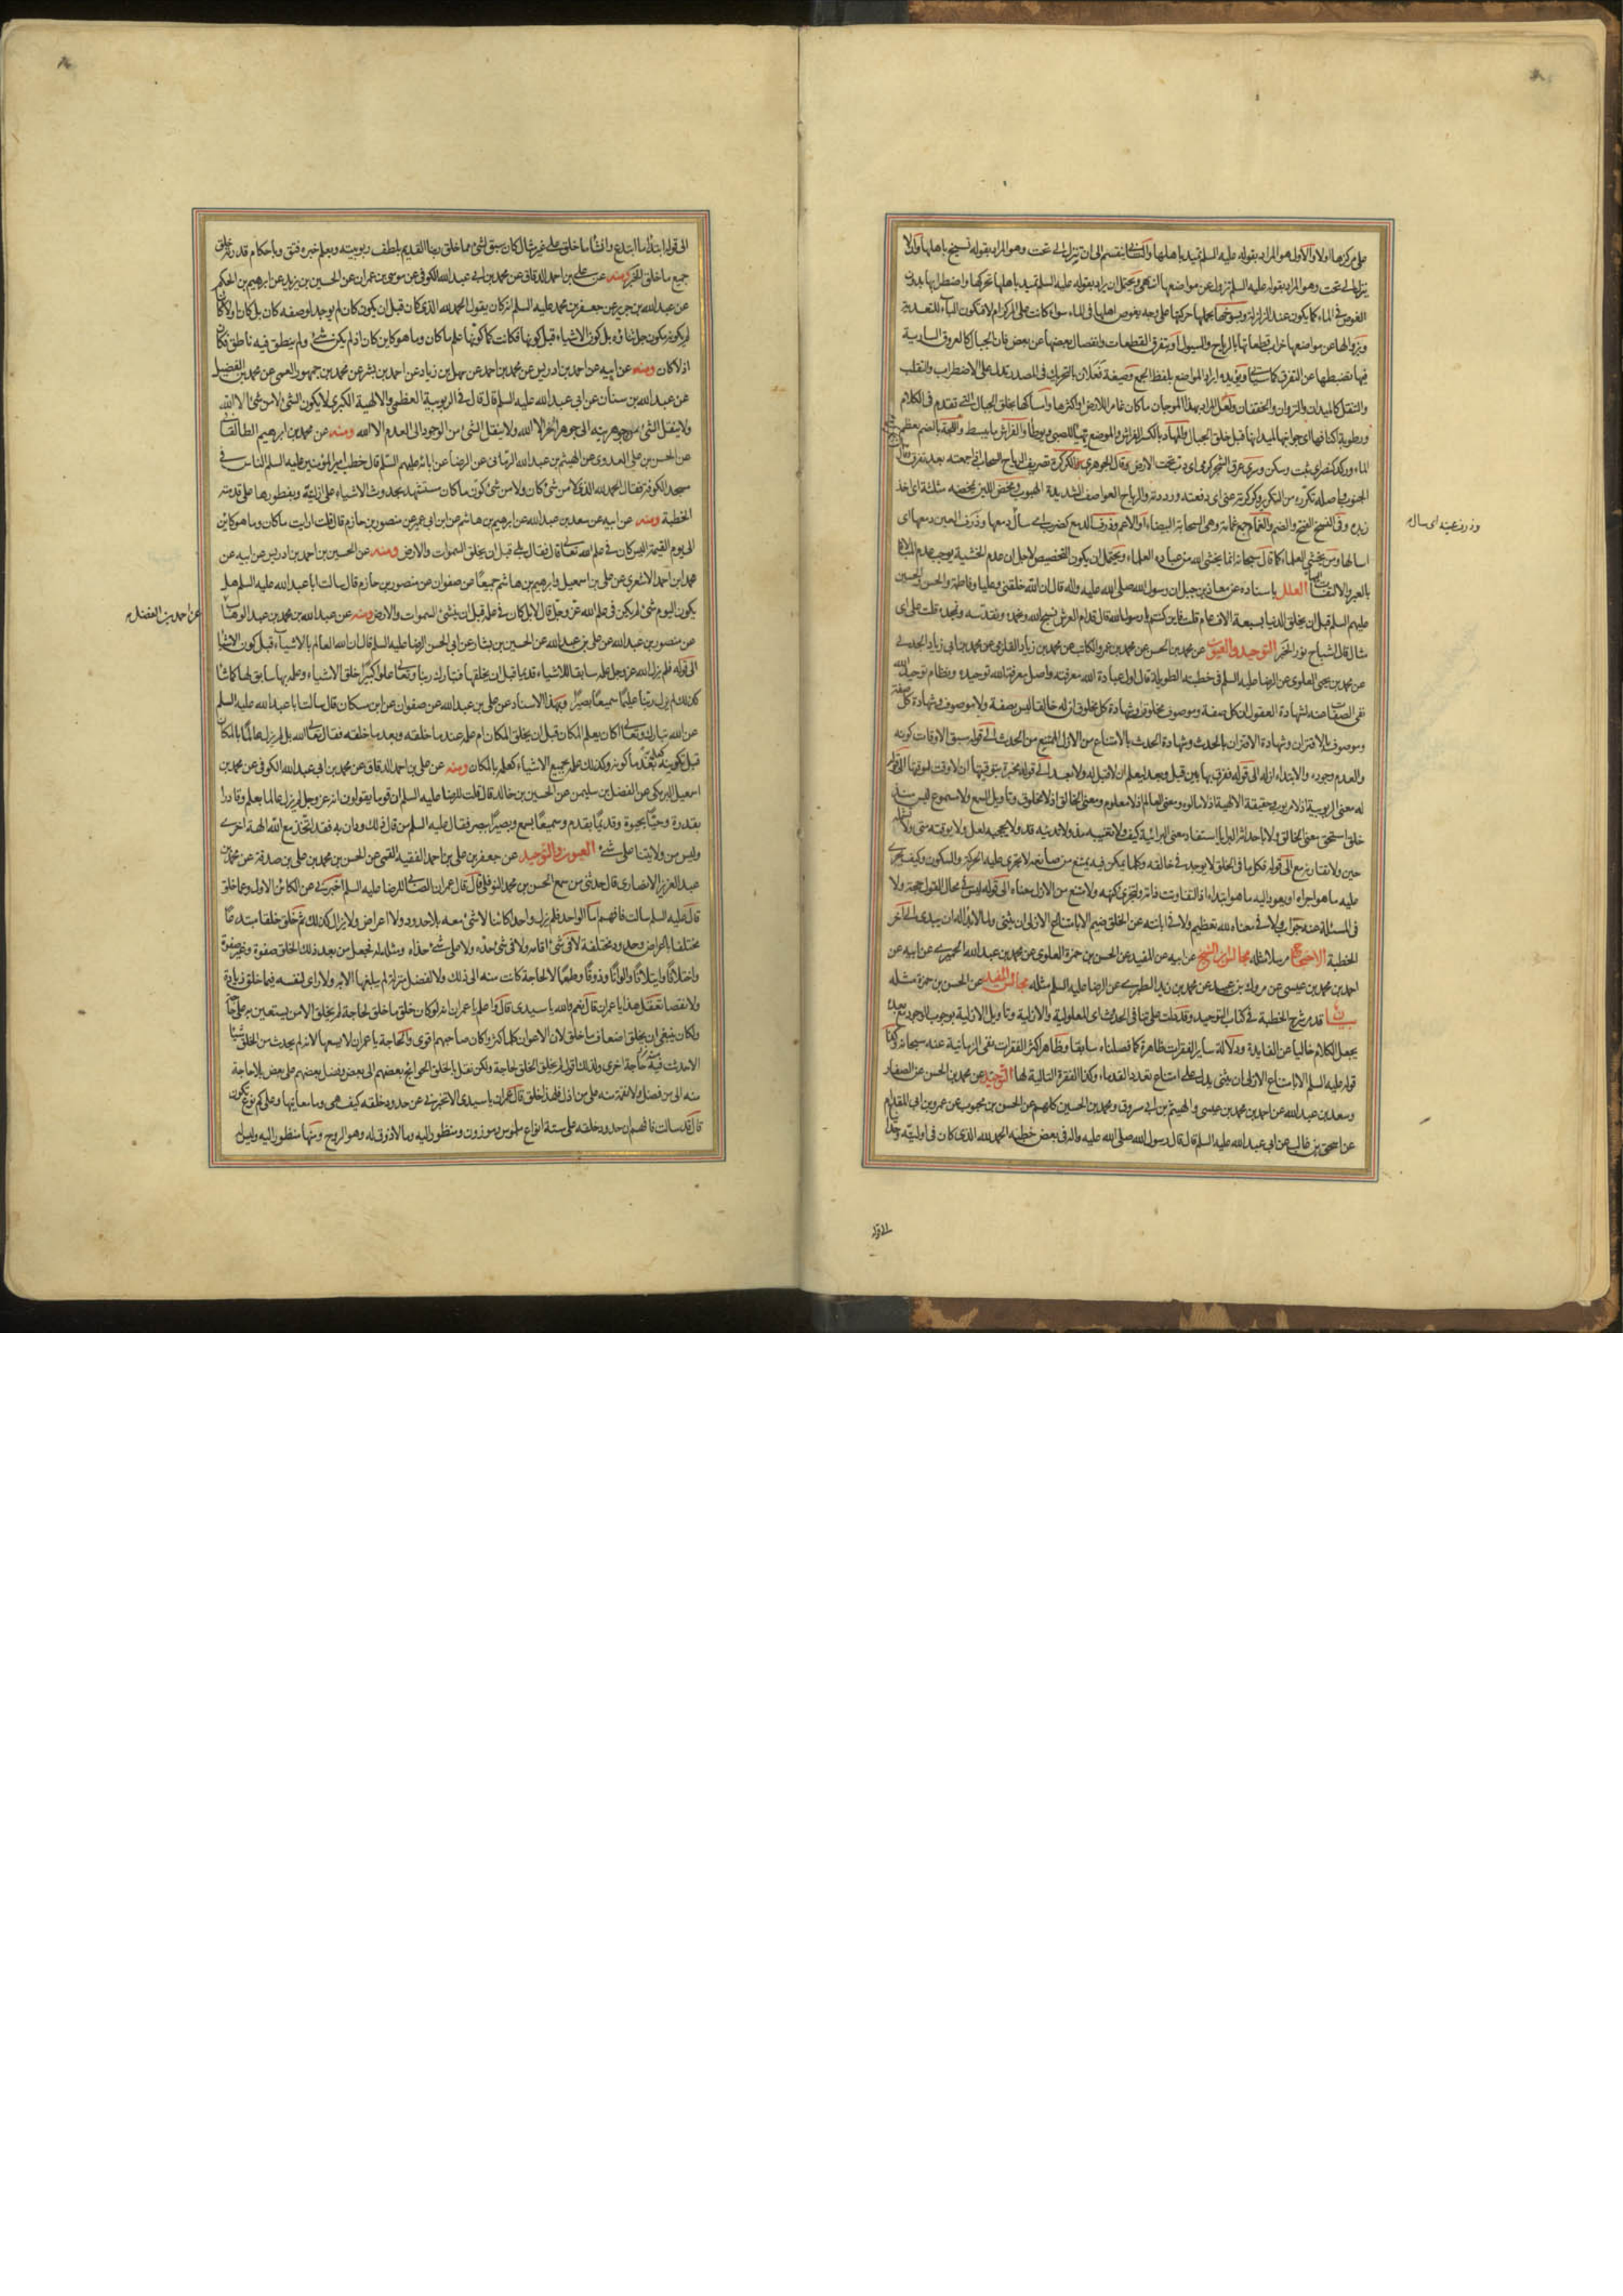 على مركزها اولا والاول هو المراد بقوله عليه السلم تميد باهلها والثاني ينقسم الى ان تنزل الى تحت وهو المراد بقوله تسيخ باهلها واو لا
ينزل الى تحت وهو المراد بقوله عليه السلم تزول عن مواضعها انتهى ويحتمل ان يراد بقوله عليه السلم تميد باهلها تحركها واضطرابها بدون
الغوص في الماء كما يكون عند الزلزلة وبسوخها بحملها حركتها على وجه يغوص اهلها في الماء سواء كانت على المركز ام لا فتكون الباء للتعدية
وبزوالها عن مواضعها خراب قطعاتها بالرياح والسيول او بتفرق القطعات وانفصال بعضها عن بعض فان الجبال كالعروق السارية
فيها تضبطها عن التفرق كما سيأتي ويؤيده ايراد المواضع بلفظ الجمع وصيغة فعلان بالتحريك في المصدر تدل على الاضطراب والتقلب
والتنقل كالميدان والنزوان والخفقان ولعل المراد بهذه الموجان ما كان غامرا للارض او اكثرها وامساكها بخلق الجبال التي تقدم في الكلام
ورطوبة اكنافها اي جوانبها لميدانها قبل خلق الجبال والمهاد بالكسر الفراش والموضع يهيأ للصبي ويوطأ والفراش ما يبسط واللجة بالضم معظم
الماء وركد كنصر اي ثبت وسكن وسرى عرق الشجر كرمى اي دب تحت الارض وقال الجوهري الكركرة تصريف الرياح السحاب اذا جمعته بعد تفرق وقال
الجنوب واصله تكرره من التكرير وكركرته عني اي دفعته ورددته والرياح العواصف الشديدة الهبوب ومخض اللبن يمخضه مثلثة اي اخذ
زبده وفي النسخ الفتح والضم والغمام جمع غمامة وهي السحابة البيضاء او الاعم وذرف الدمع كضرب اي سال دمعها وذرفت العين دمعها اي
وذرف عينه اي سال م
اسالها ومن يخشى العلماء كما قال سبحانه انما يخشى الله من عباده العلماء ويحتمل ان يكون التخصيص لاجل ان عدم الخشية يوجب عدم المبالاة
بالعبر والالتفات اليها العلل باسناده عن معاذ بن جبل ان رسول الله صلى الله عليه واله قال ان الله خلقني وعليا وفاطمة والحسن والحسين
عليهم السلم قبل ان يخلق الدنيا بسبعة الاف عام قلت فاين كنتم يا رسول الله قال قدام العرش نسبح الله ونحمده ونقدسه ونمجده قلت على اي
مثال قال اشباح نور الخبر التوحيد والعيون عن محمد بن الحسن عن محمد بن عمرو الكاتب عن محمد بن زياد القلزمي عن محمد بن ابي زياد الجدي
عن محمد بن يحيى العلوي عن الرضا عليه السلم في خطبته الطويلة قال اول عبادة الله معرفته واصل معرفة الله توحيده ونظام توحيد الله
نفي الصفات عنه لشهادة العقول ان كل صفة وموصوف مخلوق وشهادة كل مخلوق ان له خالقا ليس بصفة ولا موصوف وشهادة كل صفة
وموصوف بالاقتران وشهادة الاقتران بالحدث وشهادة الحدث بالامتناع من الازل الممتنع من الحدث الى قوله سبق الاوقات كونه
والعدم وجوده والابتداء ازله الى قوله ففرق بها بين قبل وبعد ليعلم ان لا قبل له ولا بعد الى قوله مخبرة بتوقيتها ان لا وقت لموقتها الى قوله
له معنى الربوبية اذ لا مربوب وحقيقة الالهية اذ لا مالوه ومعنى العالم اذ لا معلوم ومعنى الخالق اذ لا مخلوق وتاويل السمع ولا مسموع ليس منذ
خلق استحق معنى الخالق ولا باحداثه البرايا استفاد معنى البرائية كيف ولا تغيبه مذ ولا تدنيه قد ولا يحجبه لعل ولا يوقته متى ولا يشمله
حين ولا تقارنه مع الى قوله فكل ما في الخلق لا يوجد في خالقه وكل ما يمكن فيه يمتنع من صانعه لا تجري عليه الحركة والسكون وكيف يجري
عليه ما هو اجراه او يعود اليه ما هو ابتداه اذا لتفاوتت ذاته ولتجزى كنهه ولامتنع من الازل معناه الى قوله ليس في محال القول حجة ولا
في المسئلة عنه جواب ولا في معناه لله تعظيم ولا في ابانته عن الخلق ضيم الا بامتناع الازلي ان يثنى ولما لا بدا له ان يبدى الى اخر
الخطبة الاحتجاج مرسلا مثله مجالس ابن الشيخ عن ابيه عن المفيد عن الحسن بن حمزة العلوي عن محمد بن عبد الله الحميري عن ابيه عن
احمد بن محمد بن عيسى عن مروك بن عبيد عن محمد بن زيد الطبري عن الرضا عليه السلم مثله مجالس المفيد عن الحسن بن حمزة مثله
بيان قد مر شرح الخطبة في كتاب التوحيد وقد دلت على تنافي الحدث اي المعلولية والازلية وتاويل الازلية بوجوب الوجود مع بعده
يجعل الكلام خاليا عن الفايدة ودلالة ساير الفقرات ظاهرة كما فصلناه سابقا وظاهر اكثر الفقرات نفي الزمانية عنه سبحانه وكذا
قوله عليه السلم الا بامتناع الازلي ان يثنى يدل على امتناع تعدد القدماء وكذا الفقرة التالية لها التوحيد عن محمد بن الحسن عن الصفار
وسعد بن عبد الله عن احمد بن محمد بن عيسى والهيثم بن ابي مسروق ومحمد بن الحسين كلهم عن الحسن بن محبوب عن عمرو بن ابي المقدام
عن اسحق بن غالب عن ابي عبد الله عليه السلم قال قال رسول الله صلى الله عليه واله في بعض خطبه الحمد لله الذي كان في اوليته وحدا
الى قوله
الى قوله ابتدأ ما ابتدع وانشأ ما خلق على غير مثال كان سبق لشئ مما خلق ربنا القديم بلطف ربوبيته وبعلم خبره فتق وباحكام قدرته خلق
جميع ما خلق الخبر ومنه عن علي بن احمد الدقاق عن محمد بن ابي عبد الله الكوفي عن موسى بن عمران عن الحسين بن يزيد عن ابرهيم بن الحكم
عن عبد الله بن جرير عن جعفر بن محمد عليه السلم انه كان يقول الحمد لله الذي كان قبل ان يكون كان لم يوجد لوصفه كان بل كان اولا كائنا
لم يكونه مكون جل ثناؤه بل كون الاشياء قبل كونها فكانت كما كونها علم ما كان وما هو كاين كان اذ لم يكن شئ ولم ينطق فيه ناطق فكان
اذ لا كان ومنه عن ابيه عن احمد بن ادريس عن محمد بن احمد عن سهل بن زياد عن احمد بن بشر عن محمد بن جمهور العمي عن محمد بن الفضيل
عن عبد الله بن سنان عن ابي عبد الله عليه السلم قال قال في الربوبية العظمى والالهية الكبرى لا يكون الشئ لا من شئ الا الله
ولا ينقل الشئ من جوهريته الى جوهر اخر الا الله ولا ينقل الشئ من الوجود الى العدم الا الله ومنه عن محمد بن ابرهيم الطالقاني
عن الحسن بن علي العدوي عن الهيثم بن عبد الله الرماني عن الرضا عن ابائه عليهم السلم قال خطب امير المؤمنين عليه السلم الناس في
مسجد الكوفة فقال الحمد لله الذي لا من شئ كان ولا من شئ كون ما كان مستشهد بحدوث الاشياء على ازليته وبفطورها على قدمته
الخطبة ومنه عن ابيه عن سعد بن عبد الله عن ابرهيم بن هاشم عن ابن ابي عمير عن منصور بن حازم قال قلت ارايت ما كان وما هو كاين
الى يوم القيمة اليس كان في علم الله تعالى قال فقال بلى قبل ان يخلق السموات والارض ومنه عن الحسين بن احمد بن ادريس عن ابيه عن
محمد بن احمد الاشعري عن علي بن اسمعيل وابرهيم بن هاشم جميعا عن صفوان عن منصور بن حازم قال سالت ابا عبد الله عليه السلم هل
يكون اليوم شئ لم يكن في علم الله عز وجل قال لا بل كان في علمه قبل ان ينشئ السموات والارض ومنه عن عبد الله بن محمد بن عبد الوهاب
عن احمد بن الفضل م
عن منصور بن عبد الله عن علي بن عبد الله عن الحسين بن بشار عن ابي الحسن الرضا عليه السلم قال ان الله العالم بالاشياء قبل كون الاشياء
الى قوله فلم يزل الله عز وجل علمه سابقا للاشياء قديما قبل ان يخلقها فتبارك ربنا وتعالى علوا كبيرا خلق الاشياء وعلمه بها سابق لها كما شاء
كذلك لم يزل ربنا عليما سميعا بصيرا وبهذا الاسناد عن علي بن عبد الله عن صفوان عن ابن مسكان قال سالت ابا عبد الله عليه السلم
عن الله تبارك وتعالى اكان يعلم المكان قبل ان يخلق المكان ام علمه عندما خلقه وبعدما خلقه فقال تعالى الله بل لم يزل عالما بالمكان
قبل تكوينه كعلمه به بعد ما كونه وكذلك علمه بجميع الاشياء كعلمه بالمكان ومنه عن علي بن احمد الدقاق عن محمد بن ابي عبد الله الكوفي عن محمد بن
اسمعيل البرمكي عن الفضل بن سليمن عن الحسين بن خالد قال قلت للرضا عليه السلم ان قوما يقولون انه عز وجل لم يزل عالما بعلم وقادرا
بقدرة وحيا بحيوة وقديما بقدم وسميعا بسمع وبصيرا ببصر فقال عليه السلم من قال ذلك ودان به فقد اتخذ مع الله الهة اخرى
وليس من ولايتنا على شئ العيون والتوحيد عن جعفر بن علي بن احمد الفقيه القمي عن الحسن بن محمد بن علي بن صدقة عن محمد بن
عبد العزيز الانصاري قال حدثني من سمع الحسن بن محمد النوفلي قال قال عمران الصابي للرضا عليه السلم اخبرني عن الكائن الاول وعما خلق
قال عليه السلم سالت فافهم اما الواحد فلم يزل واحدا كائنا لا شئ معه بلا حدود ولا اعراض ولا يزال كذلك ثم خلق خلقا مبتدعا
مختلفا باعراض وحدود مختلفة لا في شئ اقامه ولا في شئ حده ولا على شئ حذاه ومثله له فجعل من بعد ذلك الخلق صفوة وغير صفوة
واختلافا وايتلافا والوانا وذوقا وطعما لا لحاجة كانت منه الى ذلك ولا لفضل منزلة لم يبلغها الا به ولا راى لنفسه فيما خلق زيادة
ولا نقصا تعقل هذا يا عمران قال نعم والله يا سيدي قال واعلم يا عمران انه لو كان خلق ما خلق لحاجة لم يخلق الا من يستعين به على حاجته
ولكان ينبغي ان يخلق اضعاف ما خلق لان الاعوان كلما كثروا كان صاحبهم اقوى والحاجة يا عمران لا يسعها لانه لم يحدث من الخلق شيئا
الا حدثت فيه حاجة اخرى ولذلك اقول لم يخلق الخلق لحاجة ولكن نقل بالخلق الحوائج بعضهم الى بعض وفضل بعضهم على بعض بلا حاجة
منه الى من فضل ولا نقمة منه على من اذل فلهذا خلق قال عمران يا سيدي الا تخبرني عن حدود خلقه كيف هي وما معانيها وعلى كم نوع تكون
قال قد سالت فافهم ان حدود خلقه على ستة انواع ملموس وموزون ومنظور اليه وما لا ذوق له وهو الروح ومنها منظور اليه وليس له